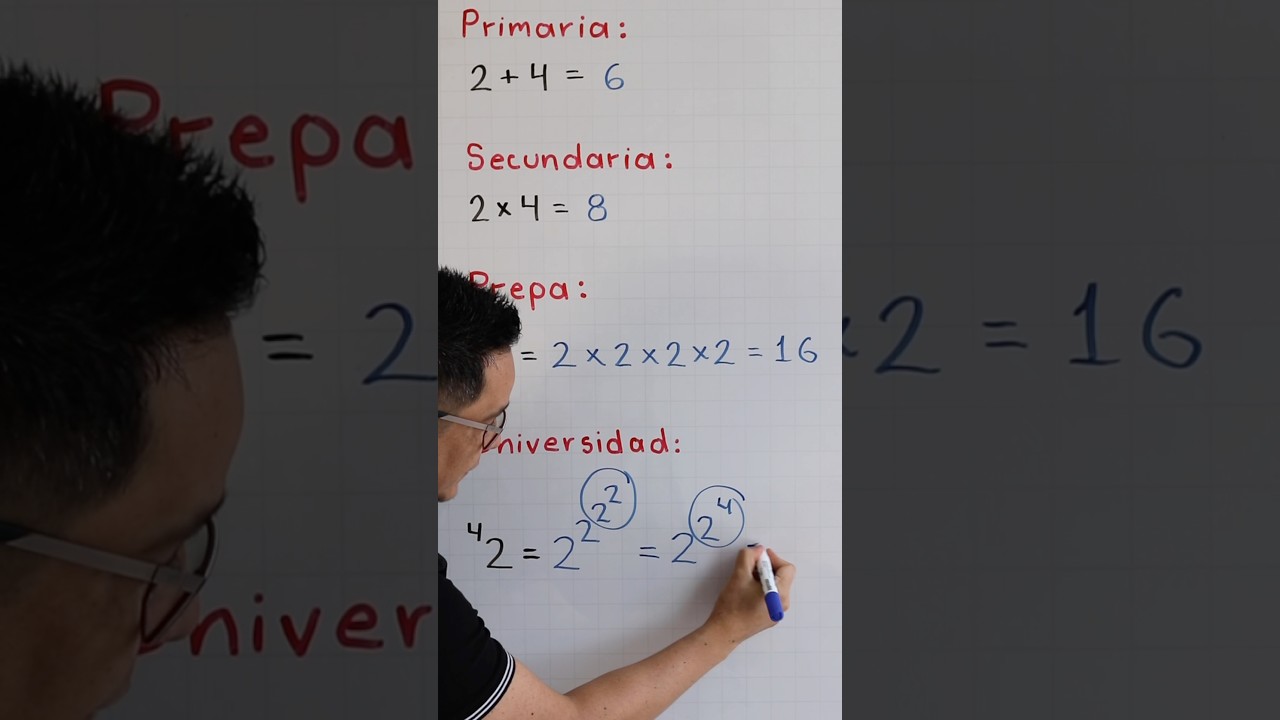 Primaria:
2 + 4 = 6
Secundaria:
2 × 4 = 8
Prepa:
= 2 × 2 × 2 × 2 = 16
Universidad:
⁴2 = 2^2^2^2 = 2^2^4